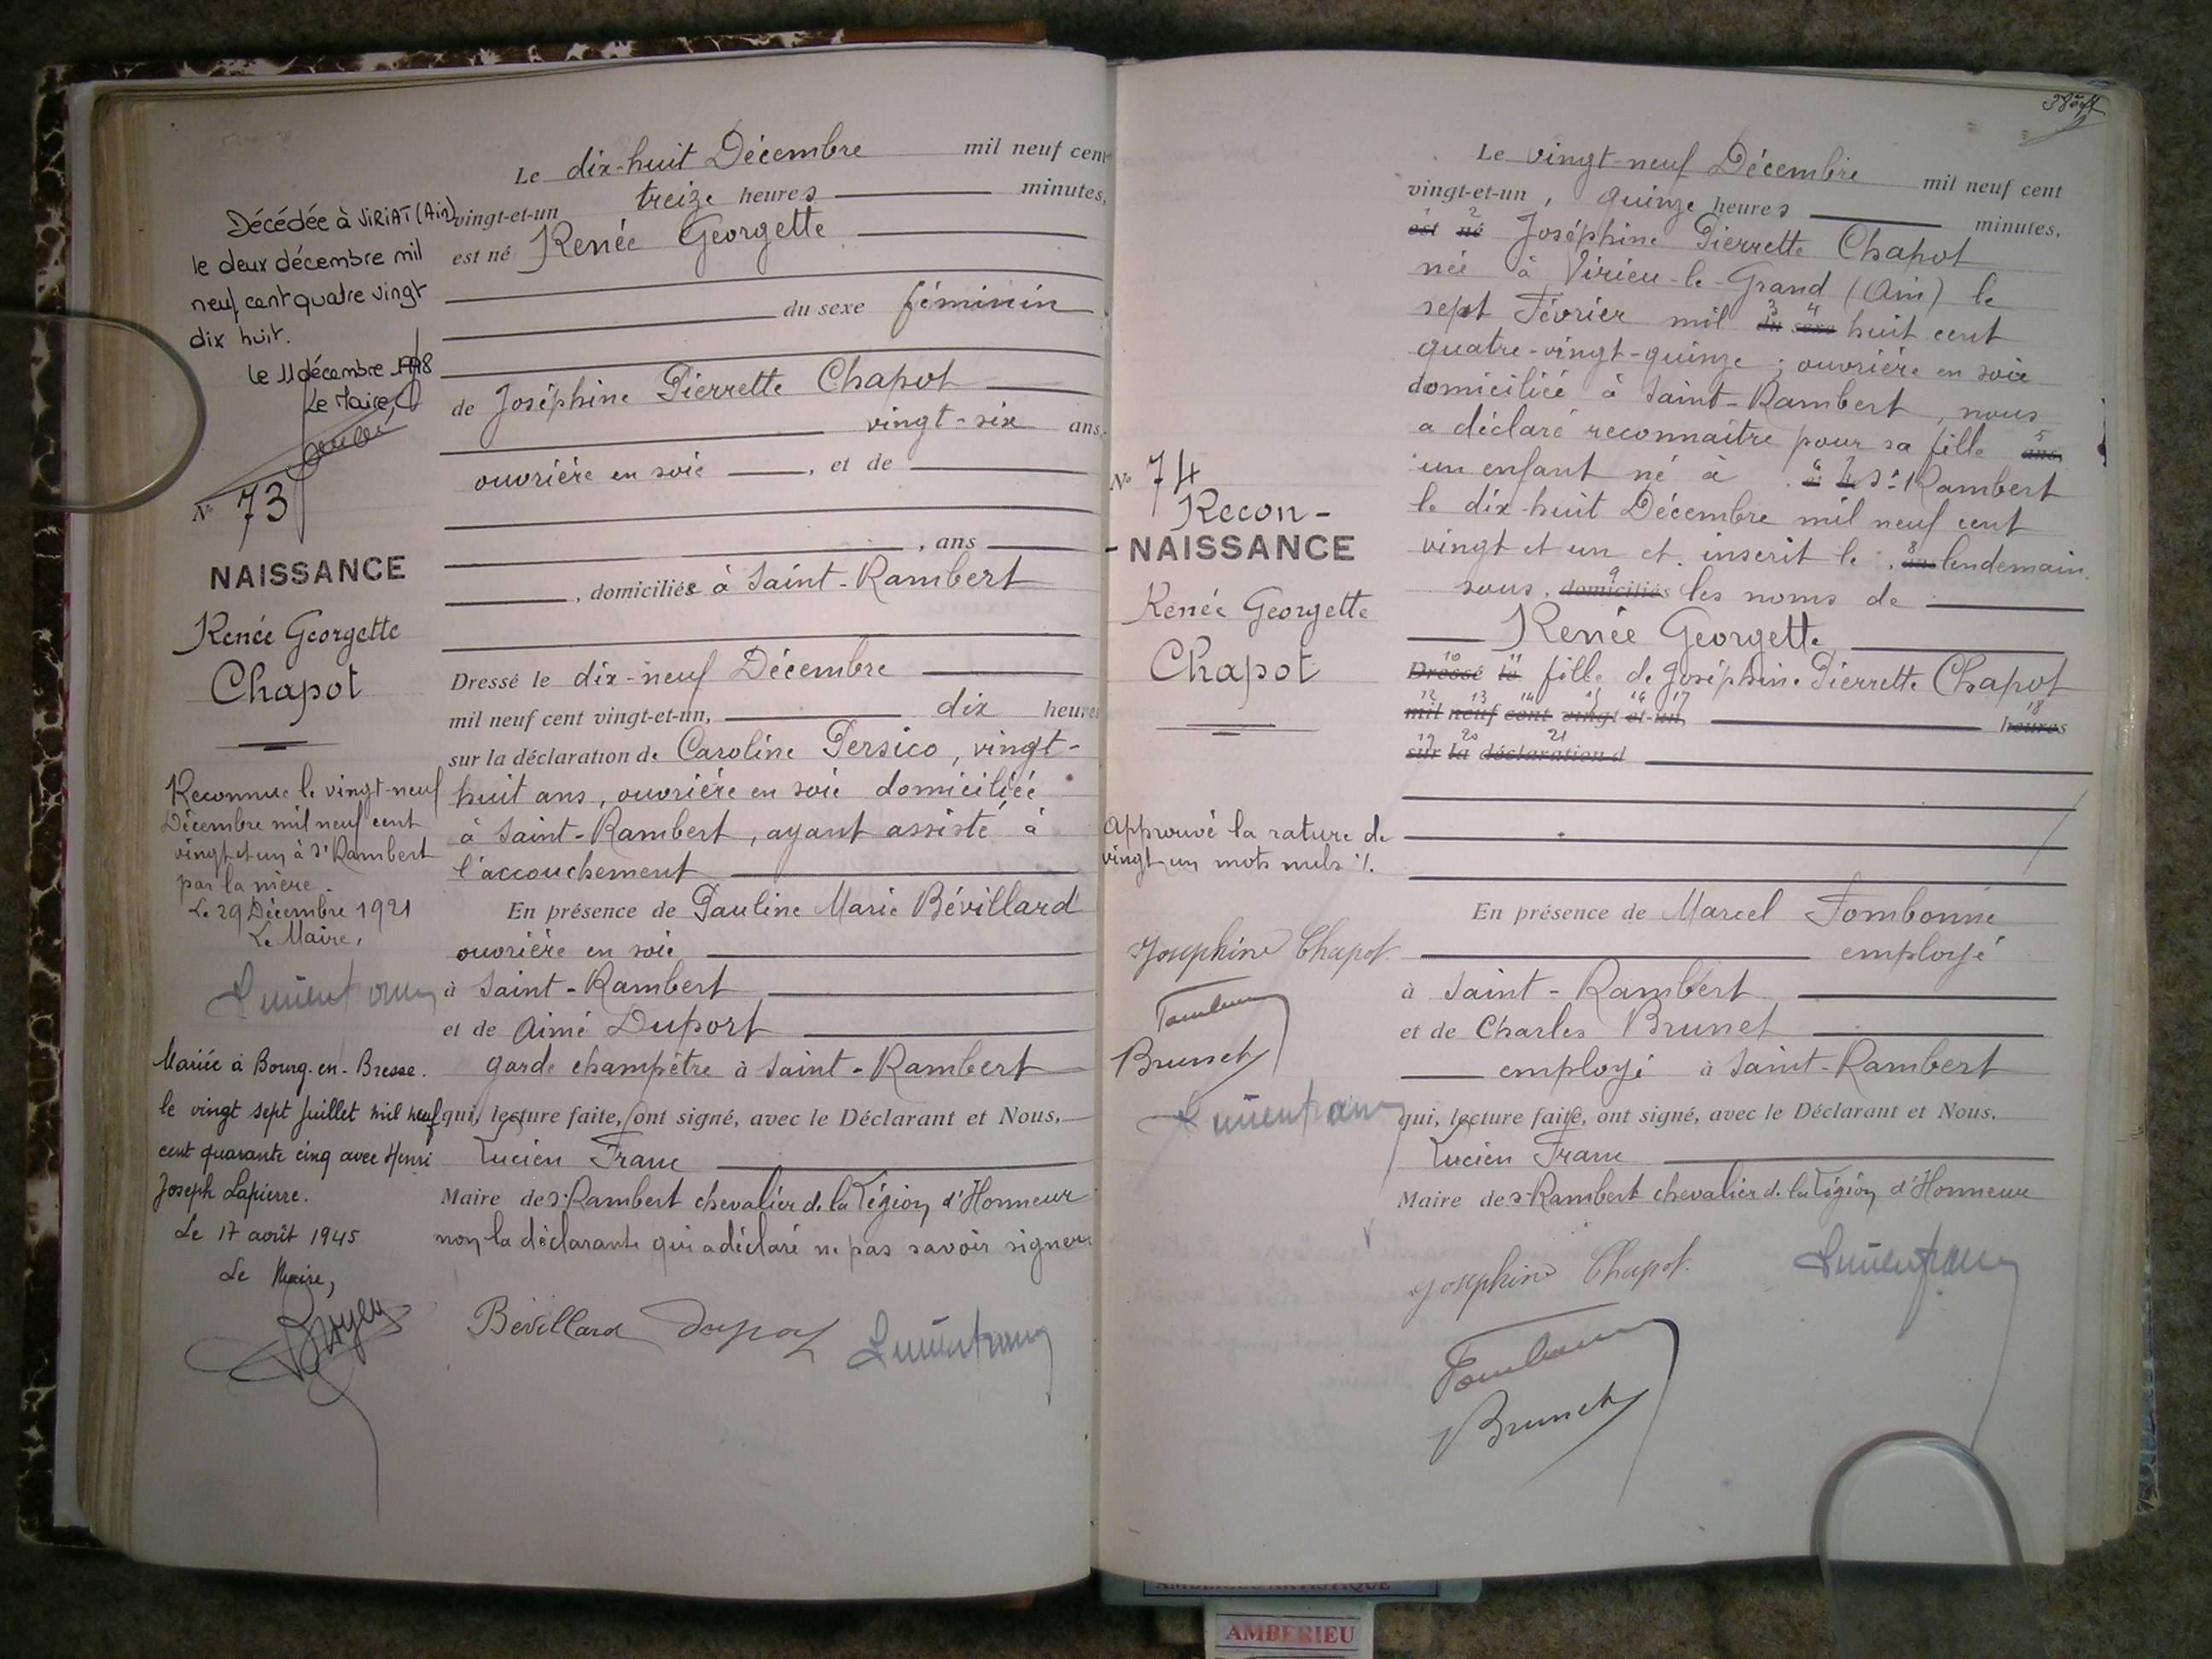 Décédée à VIRIAT (Ain)
le deux décembre mil
neuf cent quatre vingt
dix huit.
le 11 décembre 1998
Le Maire,
N° 73
NAISSANCE
Renée Georgette
Chapot
Reconnue le vingt-neuf
Décembre mil neuf cent
vingt et un à St Rambert
par la mère.
Le 29 Décembre 1921
Le Maire,
Mariée à Bourg-en-Bresse.
le vingt sept juillet mil neuf
cent quarante cinq avec Henri
Joseph Lapierre.
Le 17 août 1945
Le Maire,
Le dix-huit Décembre mil neuf cent
vingt-et-un treize heures minutes,
est né Renée Georgette
du sexe féminin
de Joséphine Pierrette Chapot
vingt-six ans,
ouvrière en soie , et de
, ans
, domiciliée à Saint-Rambert
Dressé le dix-neuf Décembre
mil neuf cent vingt-et-un, dix heures
sur la déclaration de Caroline Persico, vingt-
huit ans, ouvrière en soie domiciliée
à Saint-Rambert, ayant assisté à
l'accouchement
En présence de Pauline Marie Bévillard
ouvrière en soie
à Saint-Rambert
et de Aimé Duport
garde champêtre à Saint-Rambert
qui, lecture faite, ont signé, avec le Déclarant et Nous,
Lucien Franc
Maire de St Rambert chevalier de la Légion d'Honneur
non la déclarante qui a déclaré ne pas savoir signer
Bévillard Duport Lucien Franc
N° 74
Recon-
-NAISSANCE
Renée Georgette
Chapot
Approuvé la rature de
vingt un mots nuls ·/.
Joséphine Chapot
Brunet
Lucien Franc
Le vingt-neuf Décembre mil neuf cent
vingt-et-un, quinze heures minutes,
1 2
est né Joséphine Pierrette Chapot
née à Virieu-le-Grand (Ain) le
3 4
sept Février mil du sexe huit cent
quatre-vingt-quinze; ouvrière en soie
domiciliée à Saint-Rambert, nous
5
a déclaré reconnaître pour sa fille ans,
6 7
un enfant né à et de St Rambert
le dix-huit Décembre mil neuf cent
8
vingt et un et inscrit le , ans lendemain
9
sous , domiciliés les noms de
Renée Georgette
10 11
Dressé le fille de Joséphine Pierrette Chapot
12 13 14 15 16 17 18
mil neuf cent vingt-et-un, heures
19 20 21
sur la déclaration d
En présence de Marcel Tombonne
employé
à Saint-Rambert
et de Charles Brunet
employé à Saint-Rambert
qui, lecture faite, ont signé, avec le Déclarant et Nous,
Lucien Franc
Maire de St Rambert chevalier de la Légion d'Honneur
Joséphine Chapot Lucien Franc
Brunet
AMBERIEU ARTISTIQUE
AMBERIEU